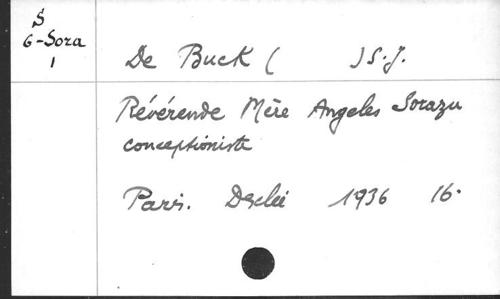 S
6-Sora
1
De Buck ( ) S.J.
Révérende Mère Angeles Sorazu
conceptioniste
Paris. Desclée 1936 16.